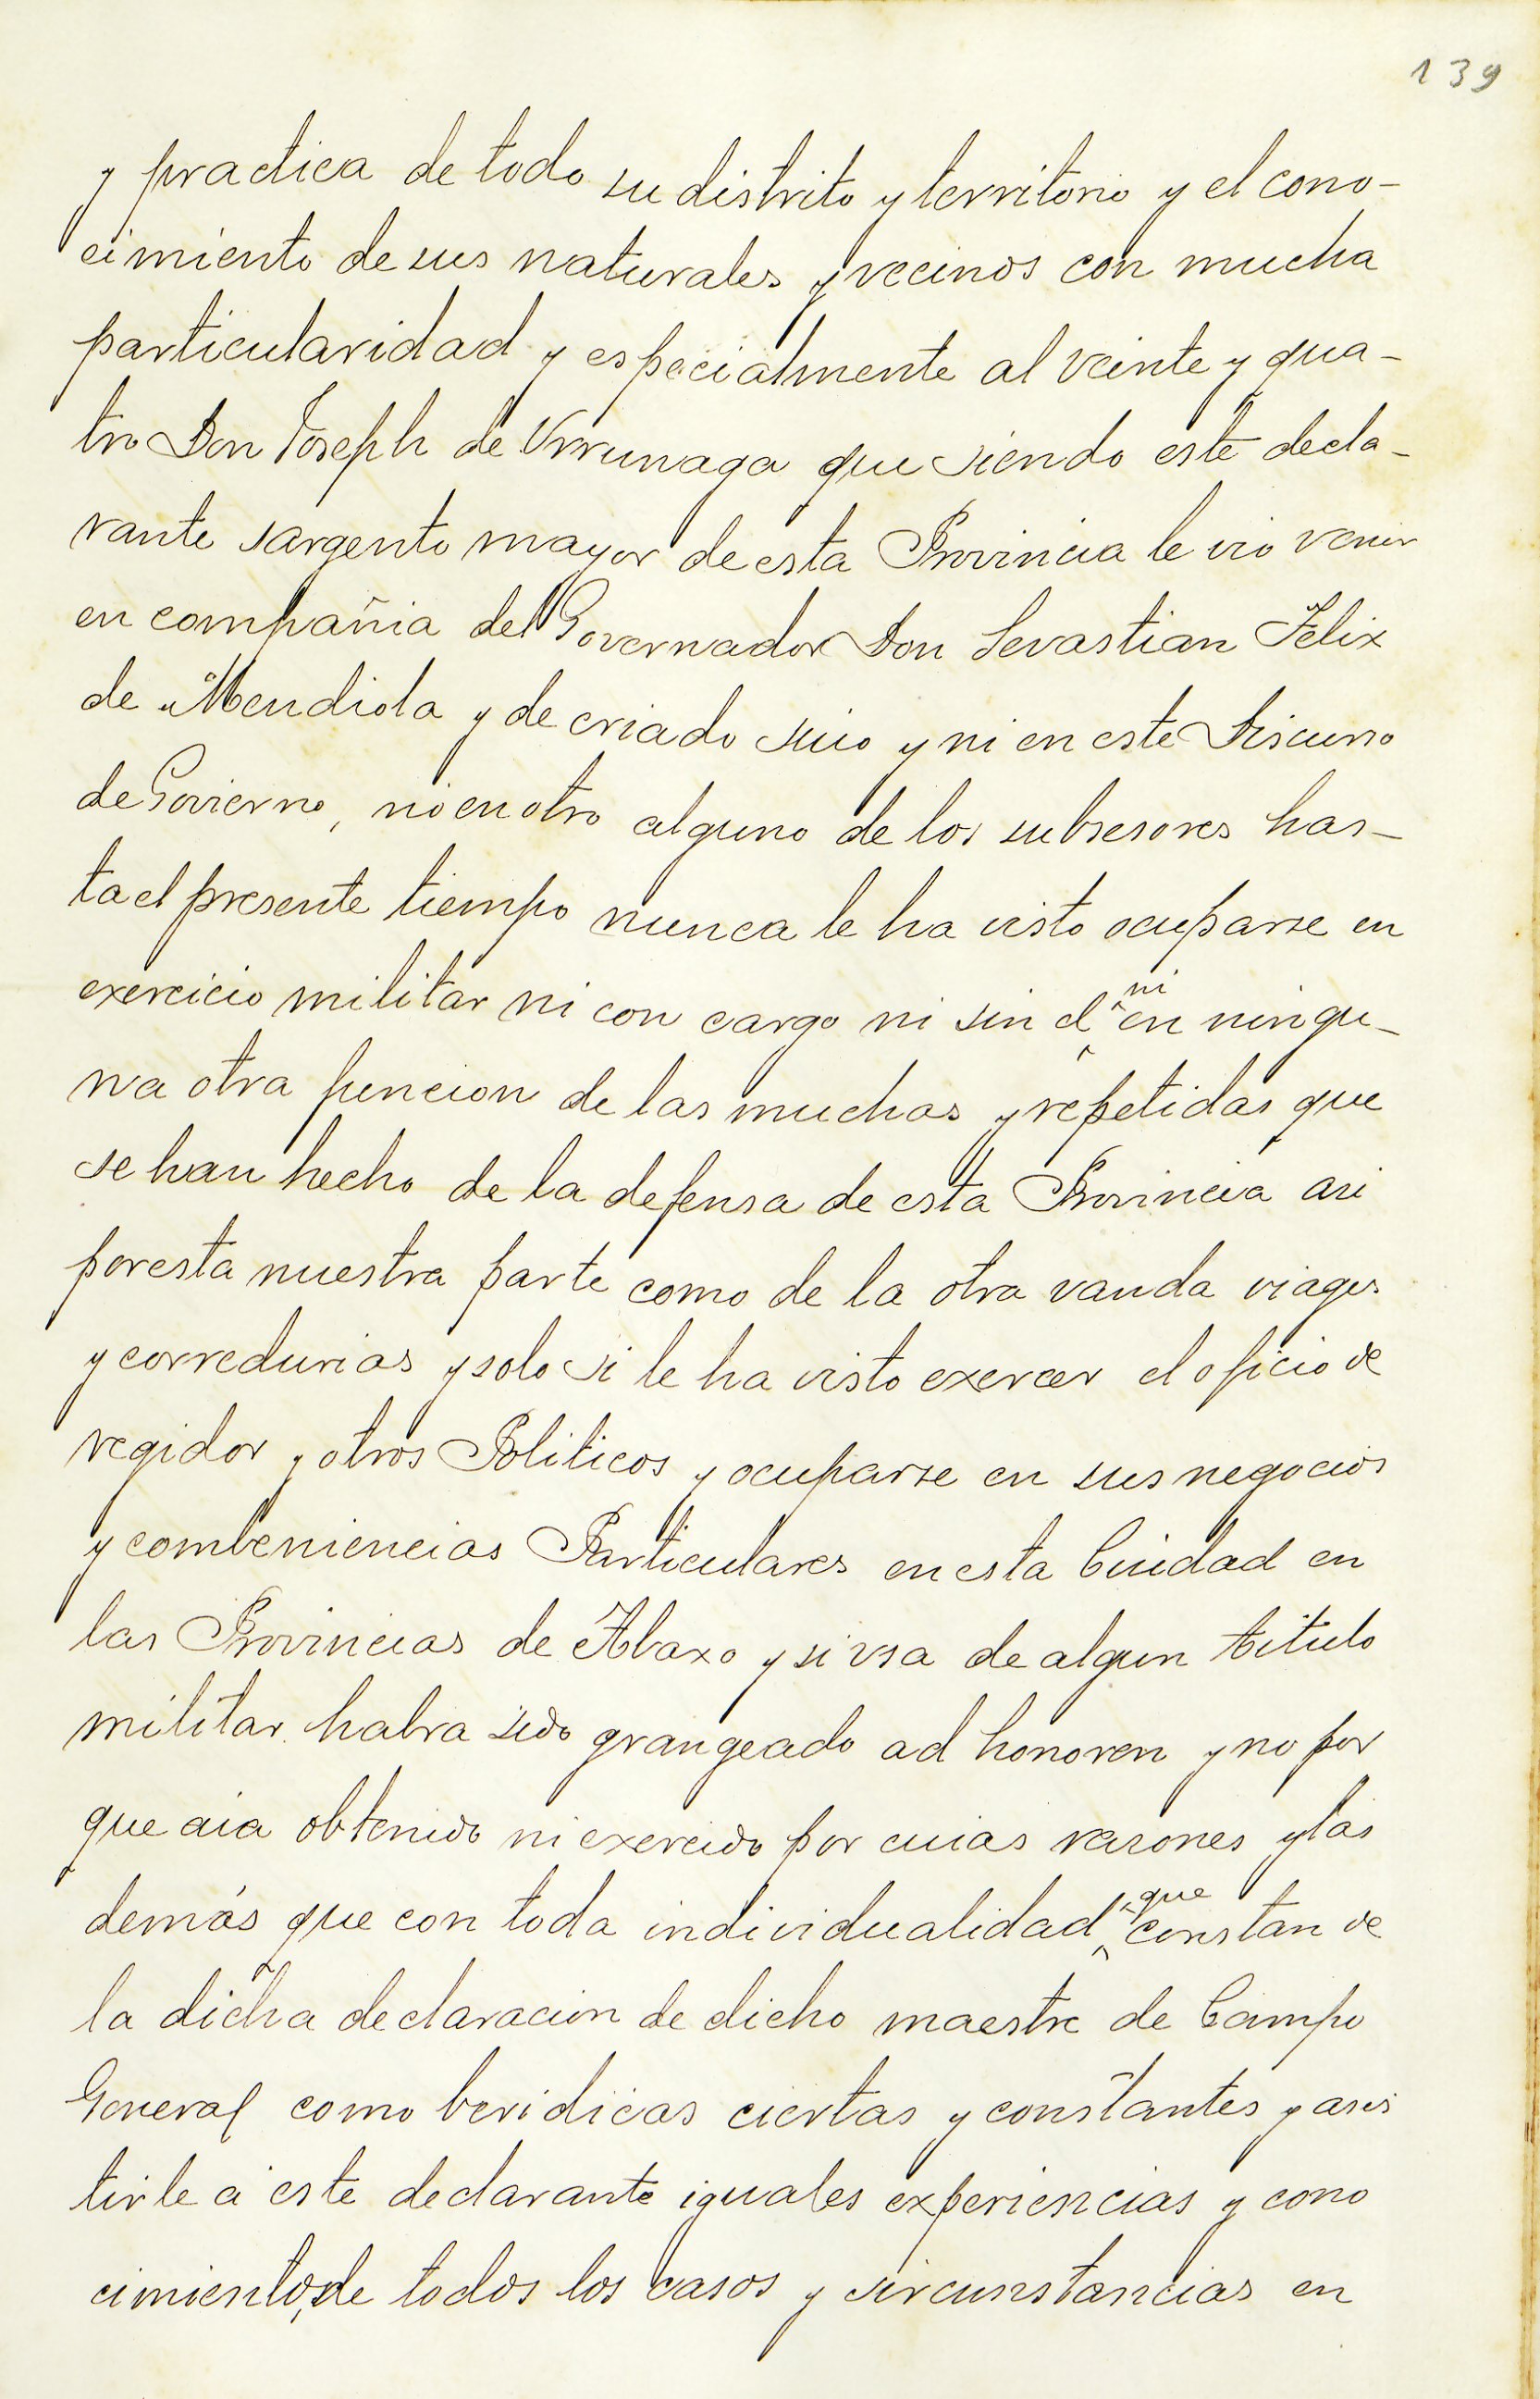 139
y practica de todo su distrito y territorio y el cono-
cimiento de sus naturales y vecinos con mucha
particularidad y especialmente al veinte y qua-
tro Don Joseph de Vrrunaga que siendo este decla-
rante sargento mayor de esta Provincia le vio venir
en compañia del Governador Don Sevastian Felix
de Mendiola y de criado suio y ni en este Discurso
de Govierno, ni en otro alguno de los subsesores has-
ta el presente tiempo nunca le ha visto ocuparse en
exercicio militar ni con cargo ni sin el ni en ningu-
na otra funcion de las muchas y repetidas que
se han hecho de la defensa de esta Provincia asi
por esta nuestra parte como de la otra vanda viages
y corredurias y solo si le ha visto exercer el oficio de
regidor y otros Politicos y ocuparse en sus negocios
y combeniencias Particulares en esta Ciudad en
las Provincias de Abaxo y si vsa de algun titulo
militar habra sido grangeado ad honoren y no por
que aia obtenido ni exercido por cuias rasones y las
demás que con toda individualidad que constan de
la dicha declaracion de dicho maestre de Campo
General como beridicas ciertas y constantes y asis
tirle a este declarante iguales experiencias y cono
cimientos, de todos los casos y sircunstancias en